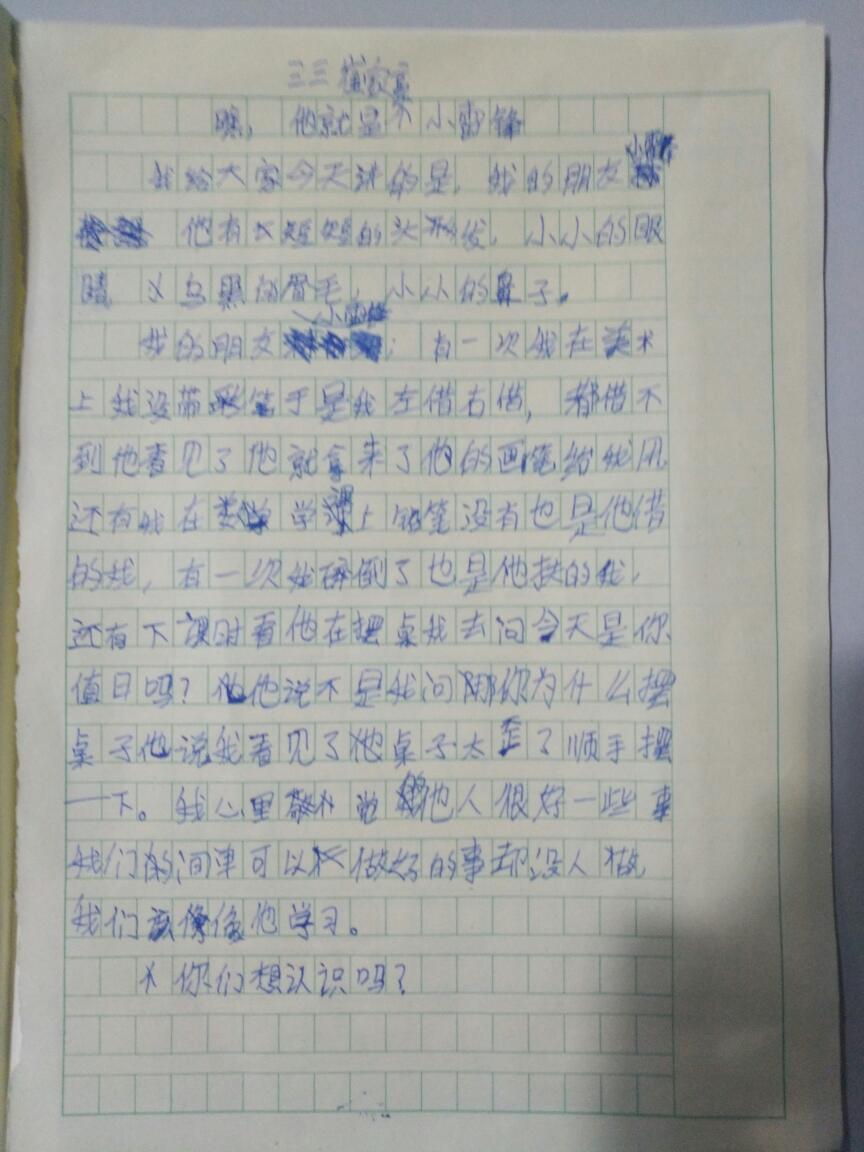 三三
瞧,他就是小雷锋
我给大家今天讲的是,我的朋友小雷锋
他有短短的头发,小小的眼
睛,乌黑的眉毛,小小的鼻子。
我的朋友小雷锋;有一次我在美术
上我没带彩笔于是我左借右借,都借不
到他看见了他就拿来了他的画笔给我用
还有我在数学课上铅笔没有也是他借
的我,有一次我摔倒了也是他扶的我,
还有下课时看他在摆桌我去问今天是你
值日吗?他说不是我问那你为什么摆
桌子他说我看见了他桌子太歪了顺手摆
一下。我心里觉他人很好一些事
我们的简单可以做好的事却没人做
我们该像他学习。
你们想认识吗?